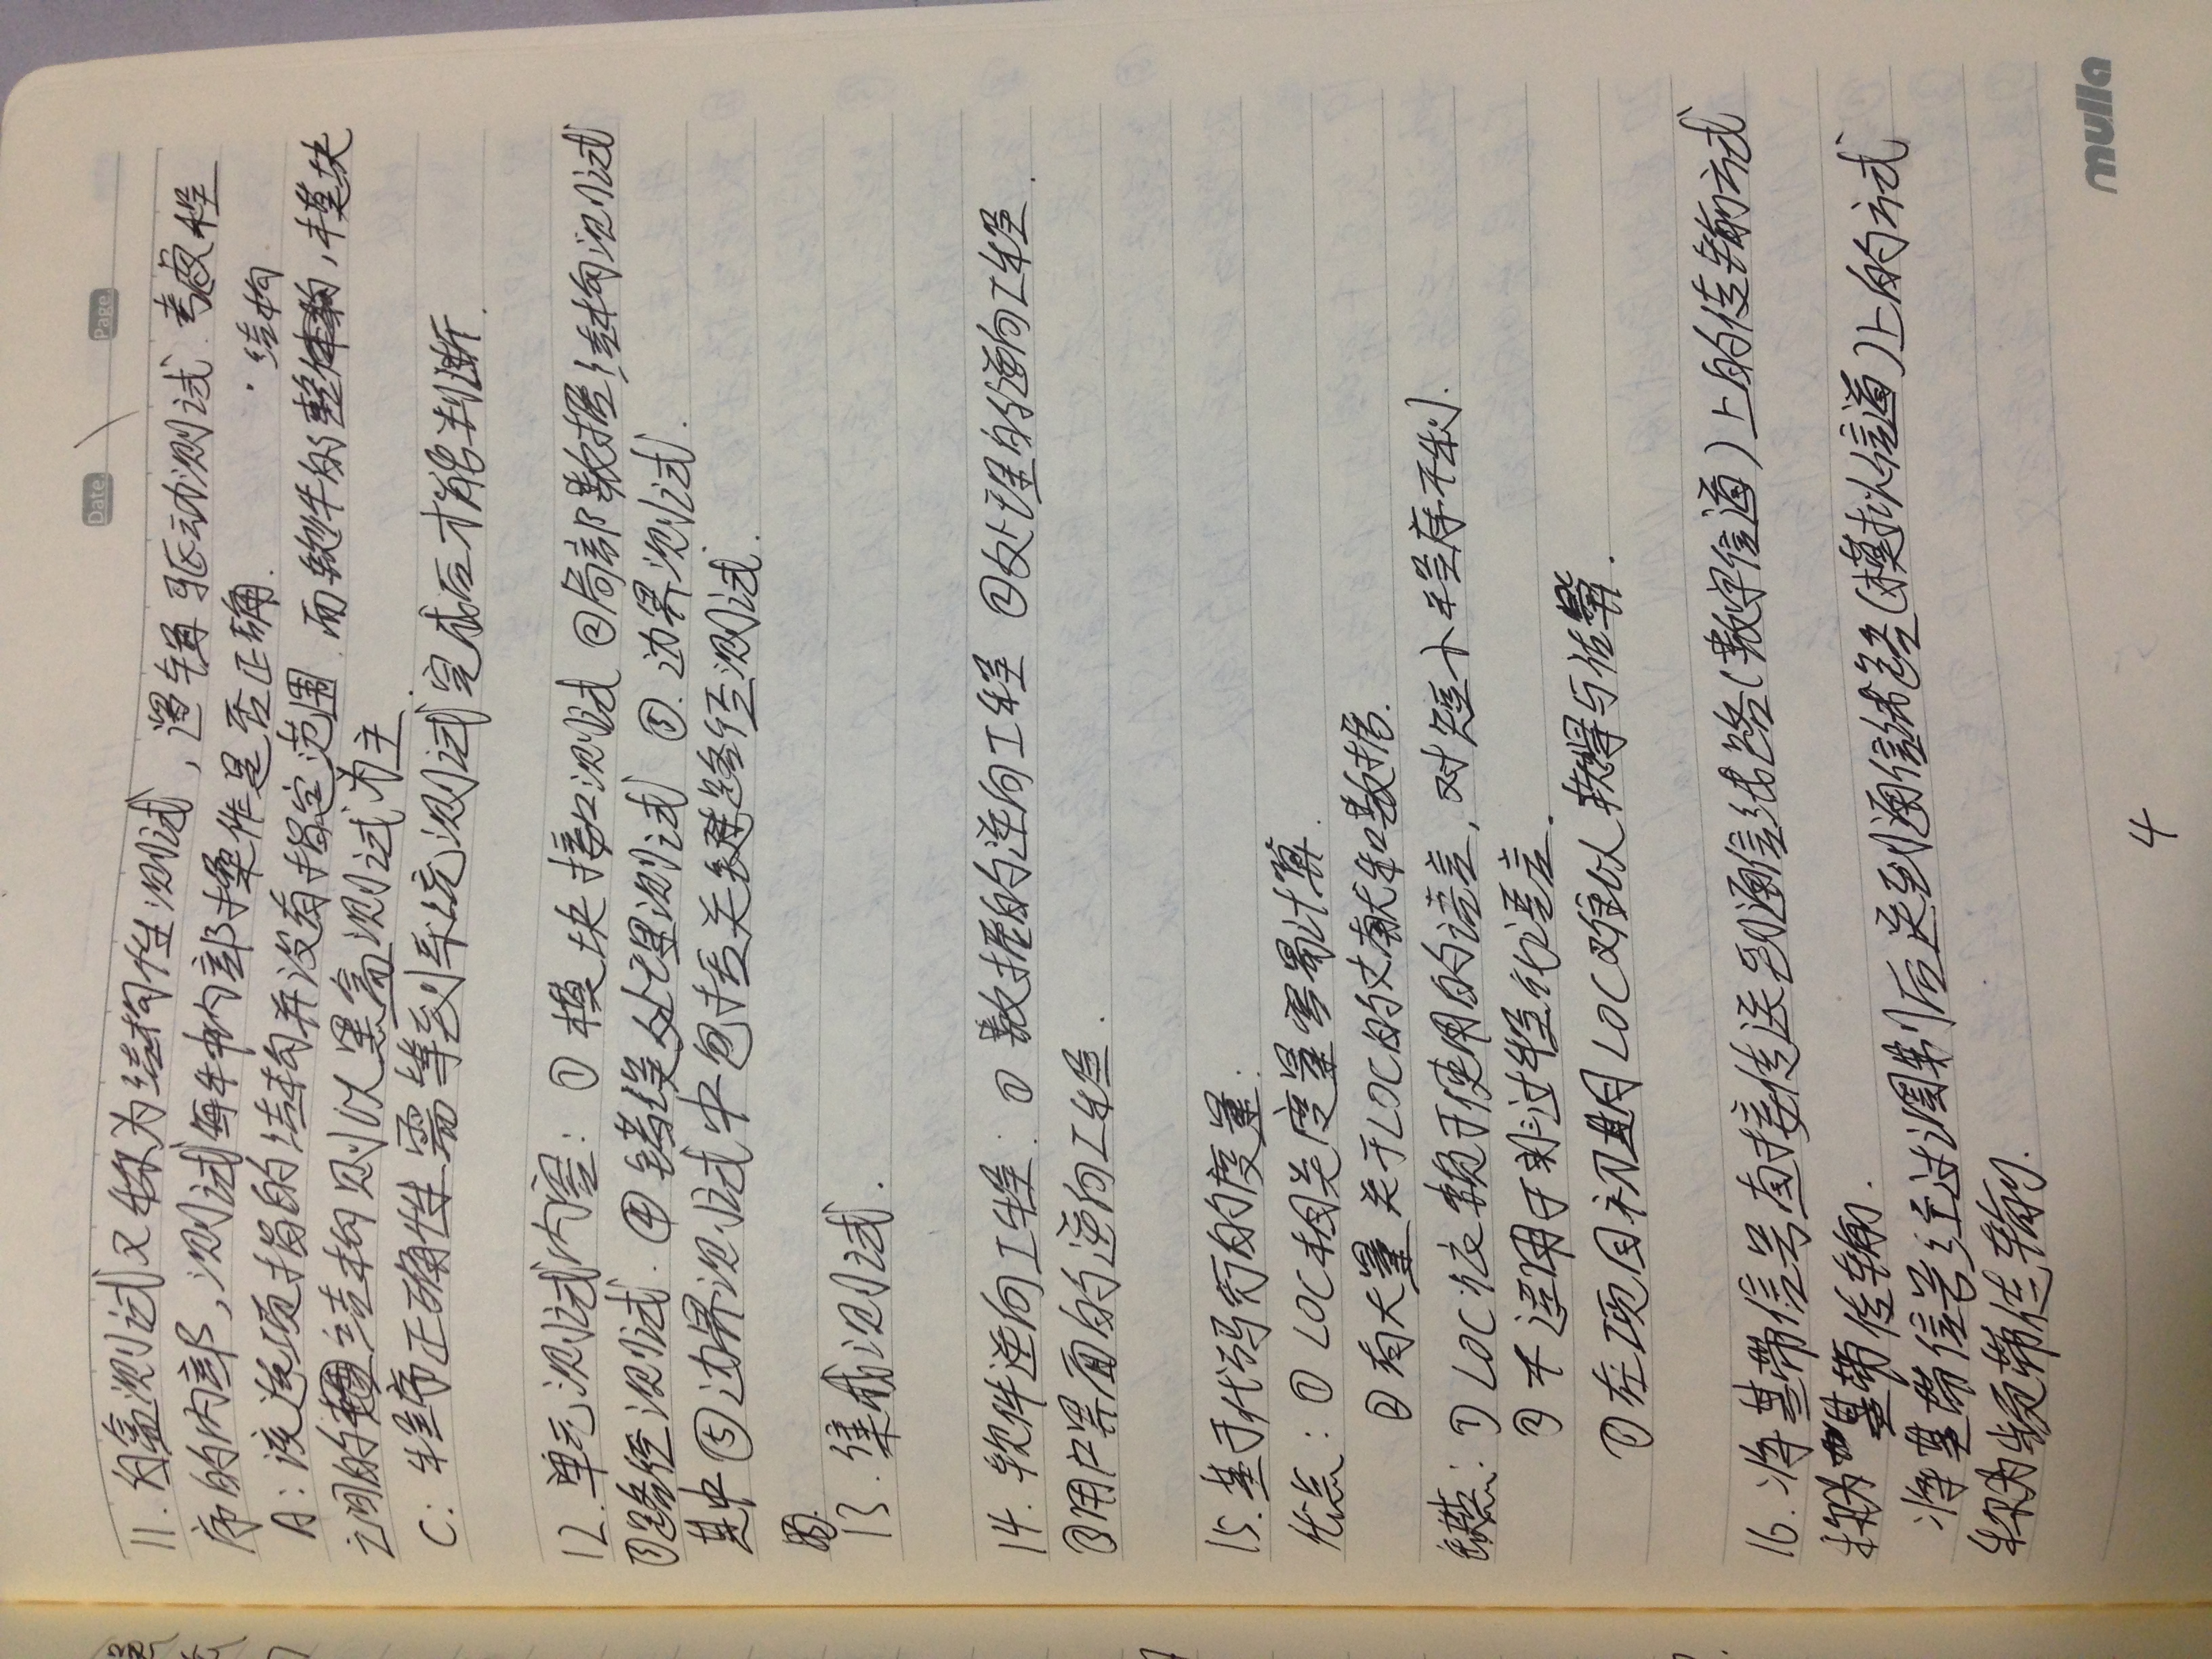 Date.
Page.
11. 白盒测试又称为结构性测试，逻辑驱动测试. 考虑程
序的内部，测试每种内部操作是否正确.
结构
A：该选项指的结构并没有指定范围. 而软件的整体，模块
之间的结构则以黑盒测试为主.
C：程序正确性需等到系统测试完成后才能判断.
12. 单元测试内容：① 模块接口测试 ②局部数据结构测试
③路径测试. ④ 错误处理测试 ⑤. 边界测试.
其中⑤边界测试中包括关键路径测试.
13. 集成测试.
14. 软件逆向工程：① 数据的逆向工程 ②处理的逆向工程.
③用户界面的逆向工程.
15. 基于代码行的度量：
优点：① LOC相关度量容易计算.
② 有大量关于LOC的文献和数据.
缺点：① LOC依赖于使用的语言，对短小程序不利.
② 不适用于非过程化语言.
③ 在项目初期LOC难以获得与估算.
16. 将基带信号直接传送到通信线路(数字信道)上的传输方式
称为基带传输.
将基带信号经过调制后送到通信线路(模拟信道)上的方式
称为频带传输.
mulla
4